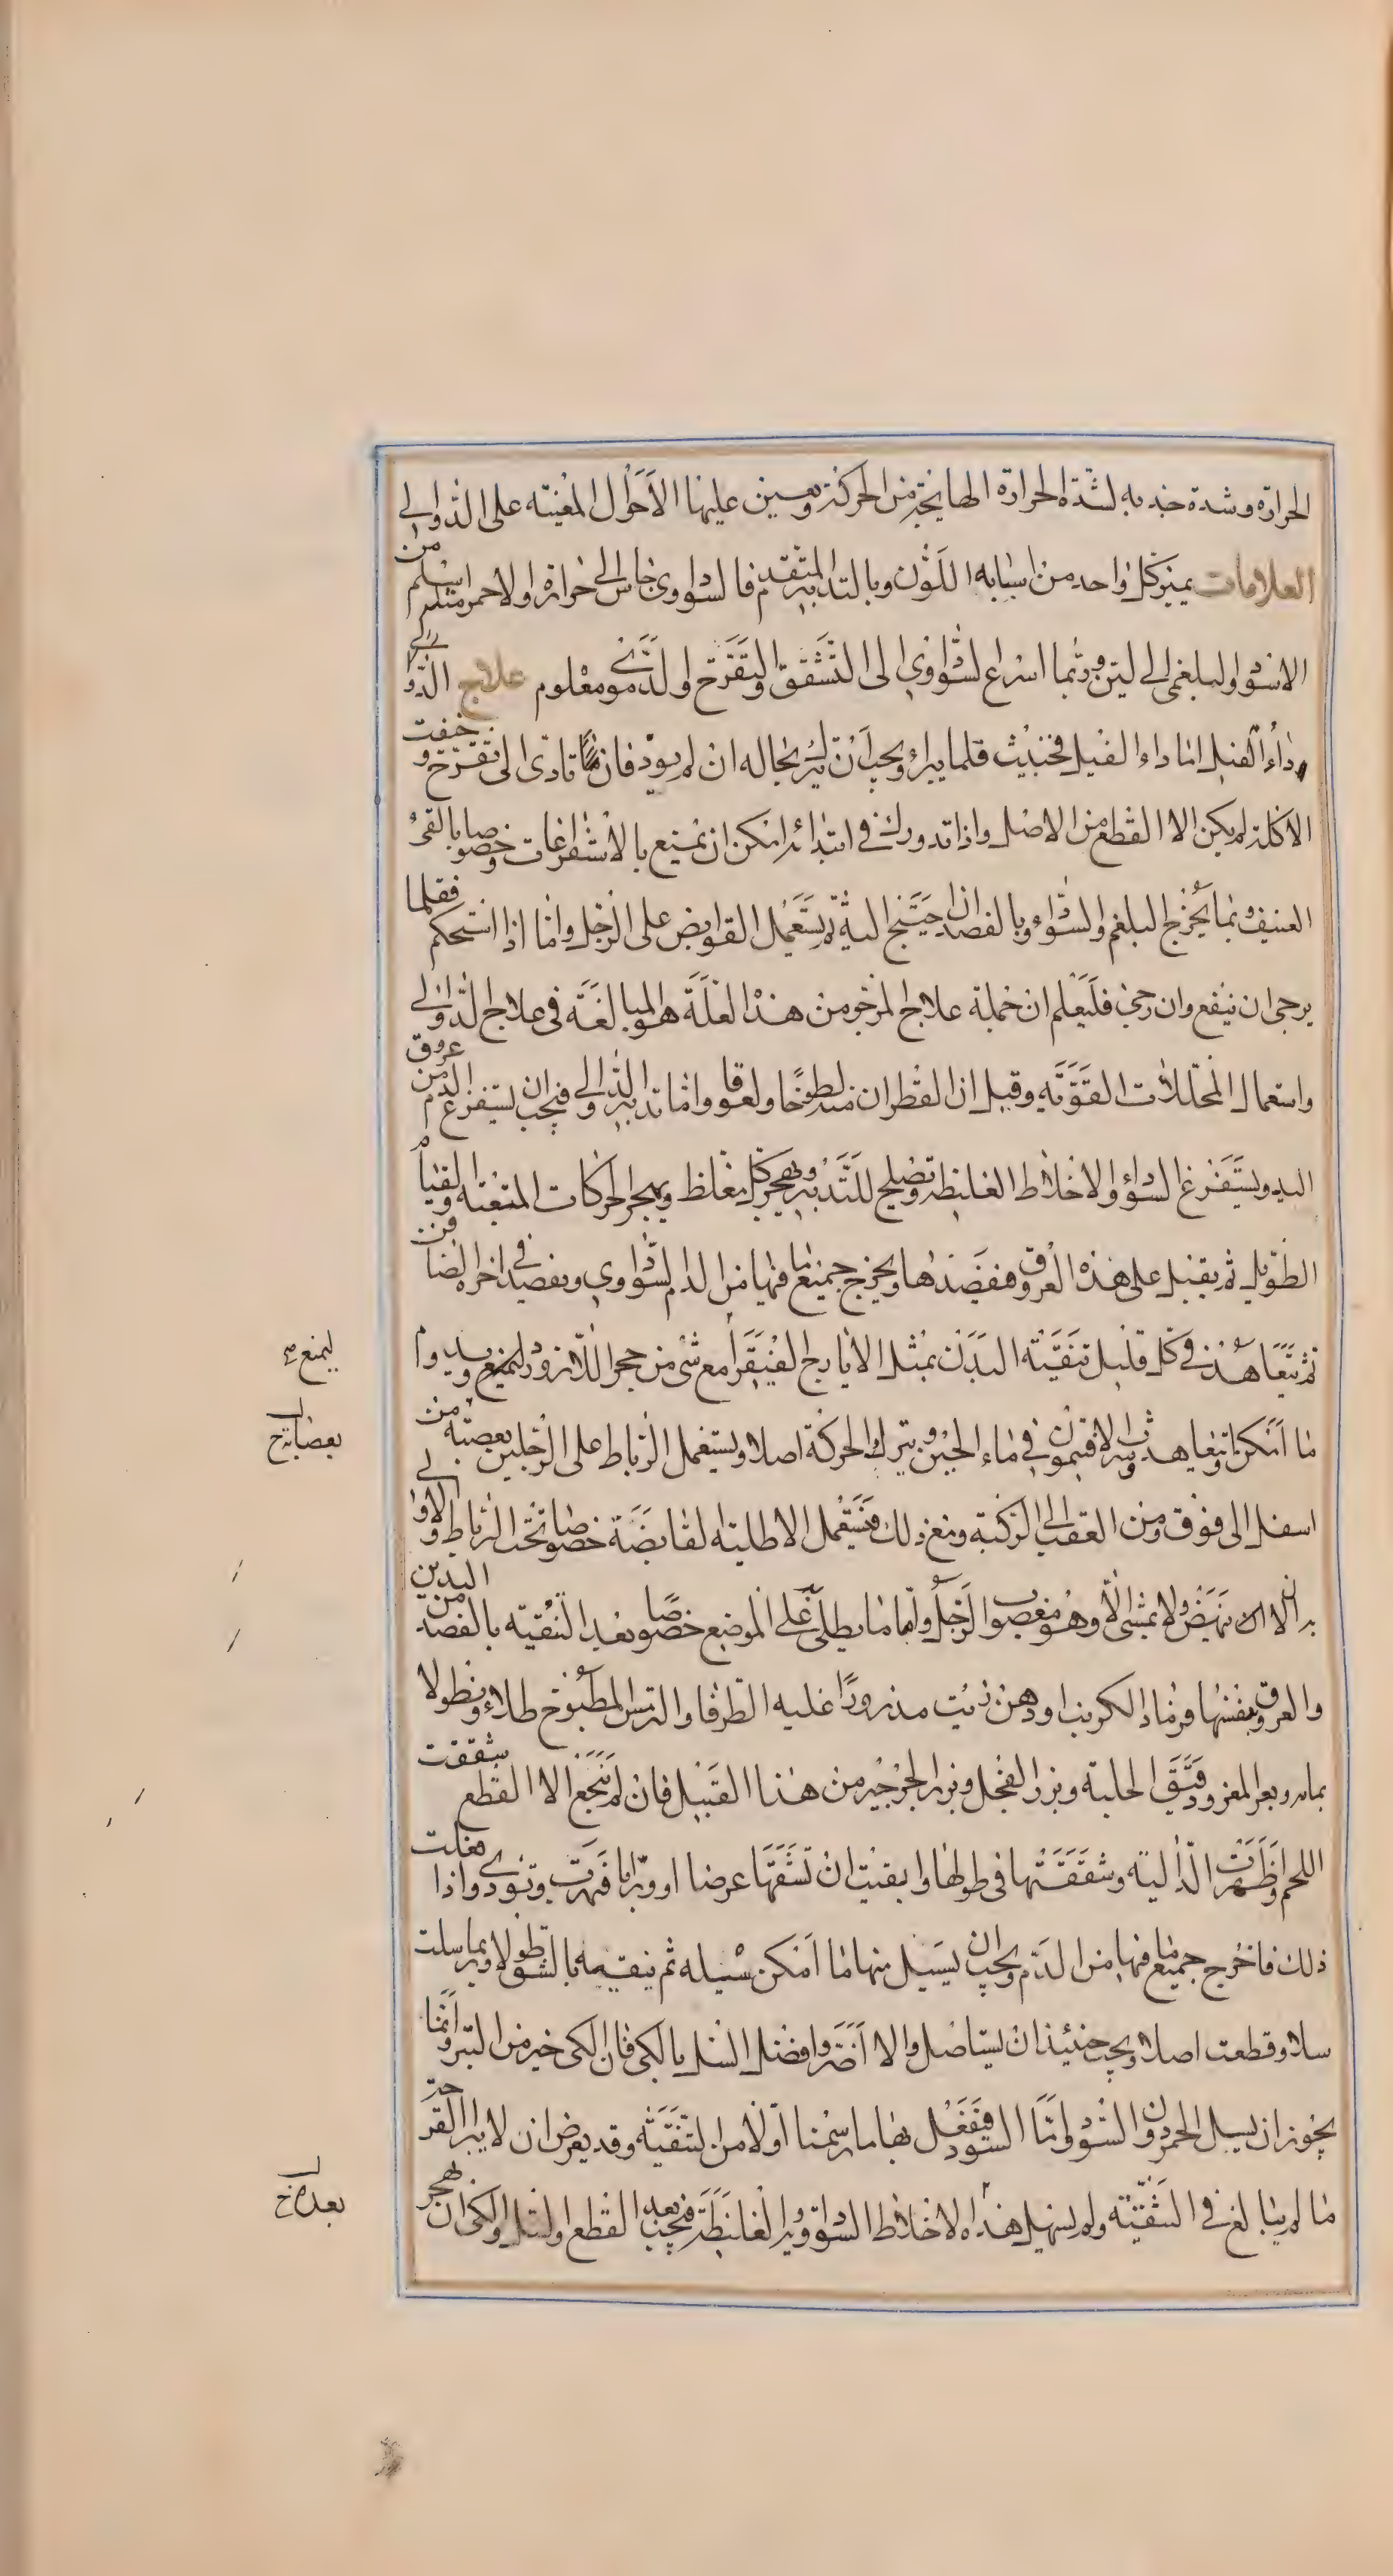 الحرارة وشدة جذبه لشدة الحرارة الهايجة من الحركة ويعين عليها الأحوال المعينة على الدوالي
العلامات يميز كل واحد من اسبابه اللون وبالتدبير المتقدم فالسوداوي خاس الى حرارة والاحمر منه اسلم من
الاسود والبلغمي الى لين وربما اسرع السوداوي الى التشقق والتقرح والدموي معلوم علاج الدوالي
وداء الفيل اما داء الفيل فخبيث قلما يبرا ويجب ان يترك بحاله ان لم يوذ فان تادى الى تقرح وخفت
الاكلة لم يكن الا القطع من الاصل واذا تدورك في ابتدائه امكن ان يمنع بالاستفراغات وخصوصا بالقيء
العنيف وبما يخرج البلغم والسوداء وبالفصد ان احتيج اليه ثم يستعمل القوابض على الرجل واما اذا استحكم فقلما
يرجى ان ينفع وان رجي فليعلم ان جملة علاج المرجو من هذه العلة هو المبالغة في علاج الدوالي
واستعمال المحللات القوية وقيل ان القطران منه لطوخا ولعوقا واما تدبير الدوالي فيجب ان يستفرغ الدم من عروق
اليد ويستفرغ السوداء والاخلاط الغليظة وتصلح للتدبير ويهجر كل مغلظ ويهجر الحركات المتعبة والقيام
الطويل ثم يقبل على هذه العروق فيفصدها ويخرج جميع ما فيها من الدم السوداوي ويفصد في اخره الصافن
ثم يتعاهد في كل قليل تنقية البدن بمثل الايارج الفيقرا مع شي من حجر اللازورد ليمنع ويدوام
ما امكن وتعاهد شراب الافتيمون في ماء الجبن ويترك الحركة اصلا ويستعمل الرباط على الرجلين بعصبة من
اسفل الى فوق ومن العقب الى الركبة ومع ذلك فيستعمل الاطلية القابضة خصوصا تحت الرباط والاولى
به ان لا ينهض ولا يمشى الا وهو معصوب الرجل واما ما يطلى على الموضع خصوصا بعد التنقية بالفصد من اليدين
والعرق نفسها فرماد الكرنب او دهن زيت مذرورا عليه الطرفا والترمس المطبوخ طلاء ونطولا
بمايه وبعر المعز ودقيق الحلبة وبزر الفجل وبزر الجرجير من هذا القبيل فان لم ينجع الا القطع شققت
اللحم واظهرت الدالية وشققتها في طولها واتقيت ان تشقها عرضا او ورابا فتهرب وتوذي واذا فعلت
ذلك فاخرج جميع ما فيها من الدم ويجب ان يسيل منها ما امكن تسيله ثم ينقيه بالشق طولا وربما سلت
سلا وقطعت اصلا ويجب حينئذ ان يستاصل والا اضر وافضل السل بالكي فان الكي خير من البتر وانما
يجوز ان يسل الحمر دون السود واما السود فيفعل بها ما رسمنا اولا من التنقية وقد يعرض ان لا يبرا القرحة
ما لم يبالغ في التنقية ولم يسهل هذه الاخلاط السوداوية الغليظة فيجب بعد القطع والسل والكي ان يهجر
ليمنع صح
بعصابة خ
بعد خ